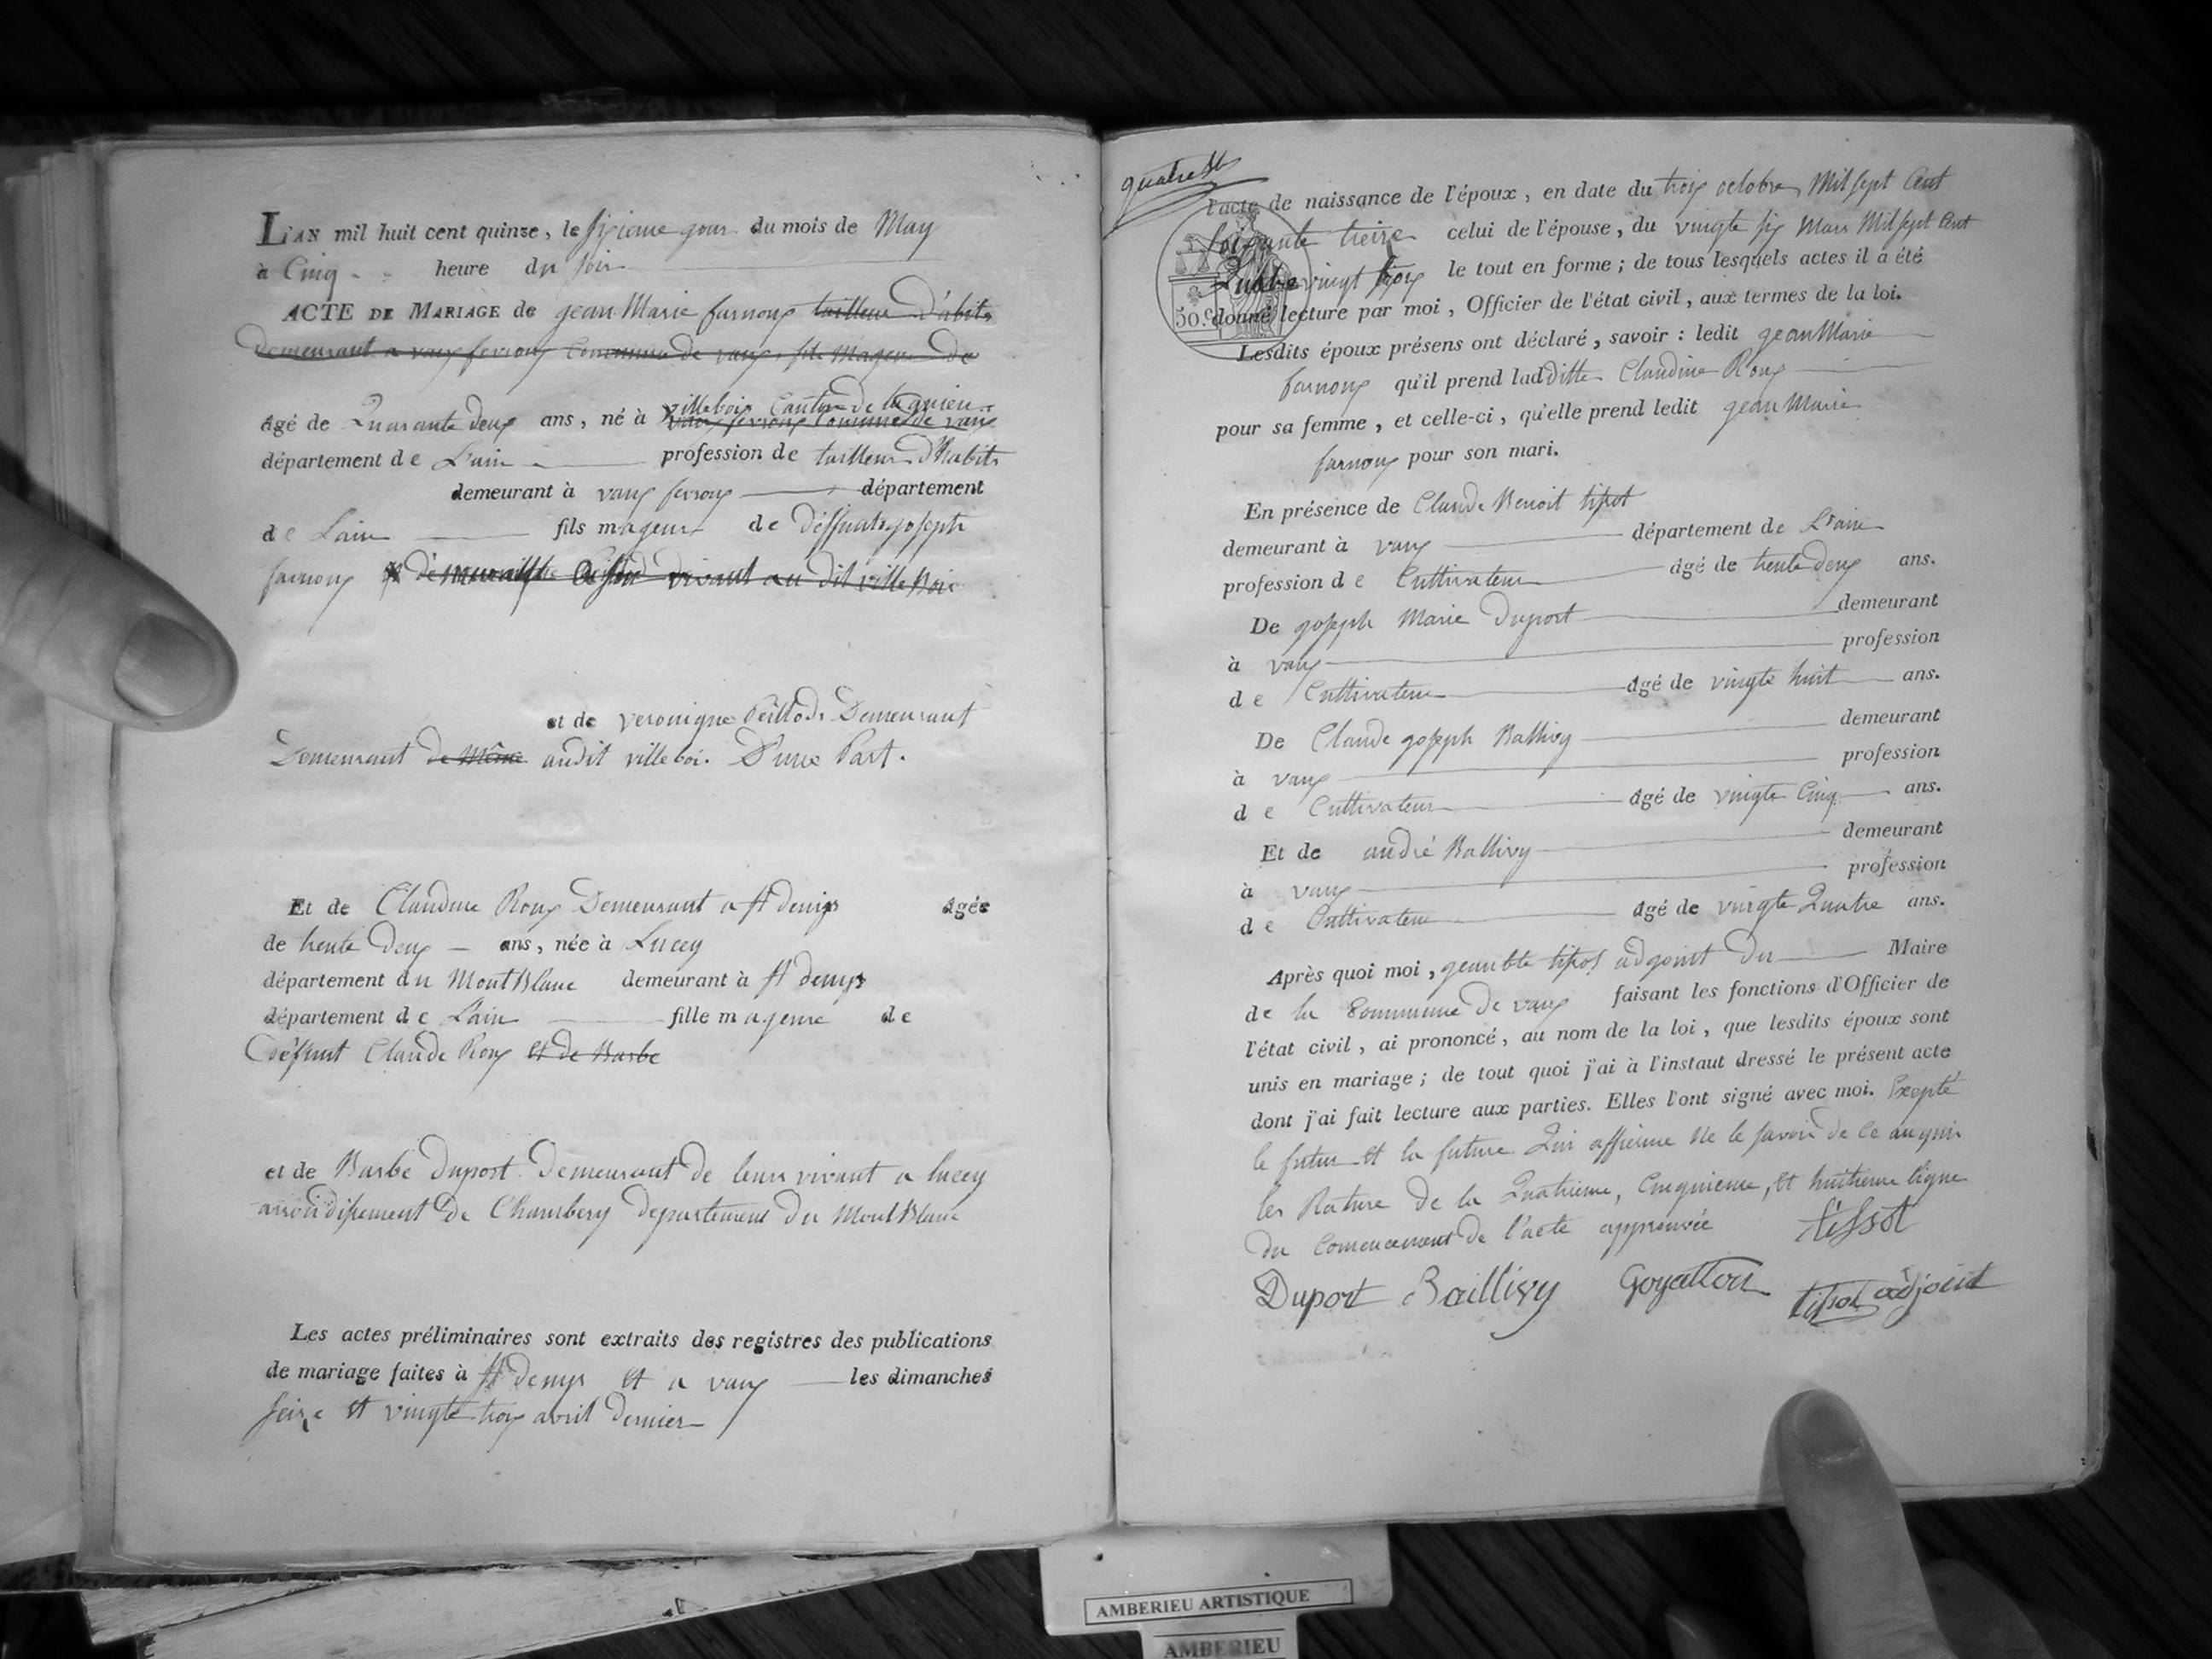 L'AN mil huit cent quinze, le sixieme jour du mois de May
à Cinq heure du soir
ACTE DE MARIAGE de jean Marie farnoux tailleur D'abits
demeurant a vaux fevroux Commune de vaux, fils Mageur de
villebois Canton de lagnieu
âgé de Quarante deux ans, né à vaux fevroux Commune de vaux
département de L'ain profession de tailleur D'habits
demeurant à vaux fevroux département
de Lain fils mageur de deffunts joseph
farnoux vivant au dit villebois
et de veronique Demeurant
Demeurant de même audit villebois D'une Part.
Et de Claudine Roux Demeurant a St denys âgée
de trente Deux ans, née à Lucey
département du MontBlanc demeurant à St denys
département de Lain fille mageure de
défunt Claude Roux et de Barbe
et de Barbe Duport Demeurant de leurs vivant a lucey
arrondissement De Chambery departement Du MontBlanc
Les actes préliminaires sont extraits des registres des publications
de mariage faites à St Denys et a vaux les dimanches
seize et vingte troix avril Dernier
quatre
l'acte de naissance de l'époux, en date du troix octobre Mil sept Cent
soixante treize celui de l'épouse, du vingte six Mars Mil sept Cent
Quatre vingt troix le tout en forme; de tous lesquels actes il a été
50.c donné lecture par moi, Officier de l'état civil, aux termes de la loi.
Lesdits époux présens ont déclaré, savoir : ledit jean Marie
farnoux qu'il prend ladditte Claudine Roux
pour sa femme, et celle-ci, qu'elle prend ledit jean Marie
farnoux pour son mari.
En présence de Claude Benoit tissot
demeurant à vaux département de L'ain
profession de Cultivateur âgé de trente deux ans.
De joseph Marie Duport demeurant
à vaux profession
de Cultivateur âgé de vingte huit ans.
De Claude joseph Ballivy demeurant
à vaux profession
de Cultivateur âgé de vingte Cinq ans.
Et de andré Ballivy demeurant
à vaux profession
de Cultivateur âgé de vingte Quatre ans.
Après quoi moi, jean bte tissot adjoint Du Maire
de la Commune De vaux faisant les fonctions d'Officier de
l'état civil, ai prononcé, au nom de la loi, que lesdits époux sont
unis en mariage; de tout quoi j'ai à l'instaut dressé le présent acte
dont j'ai fait lecture aux parties. Elles l'ont signé avec moi. Excepté
le futur et la future Qui affirme Ne le savoir De Ce anquis
les Rature De la Quatrieme, Cinquieme, et huitieme ligne
Du Comencement De l'acte approuvée tissot
Duport Baillivy Goyatton tissot adjoint
AMBERIEU ARTISTIQUE
AMBERIEU